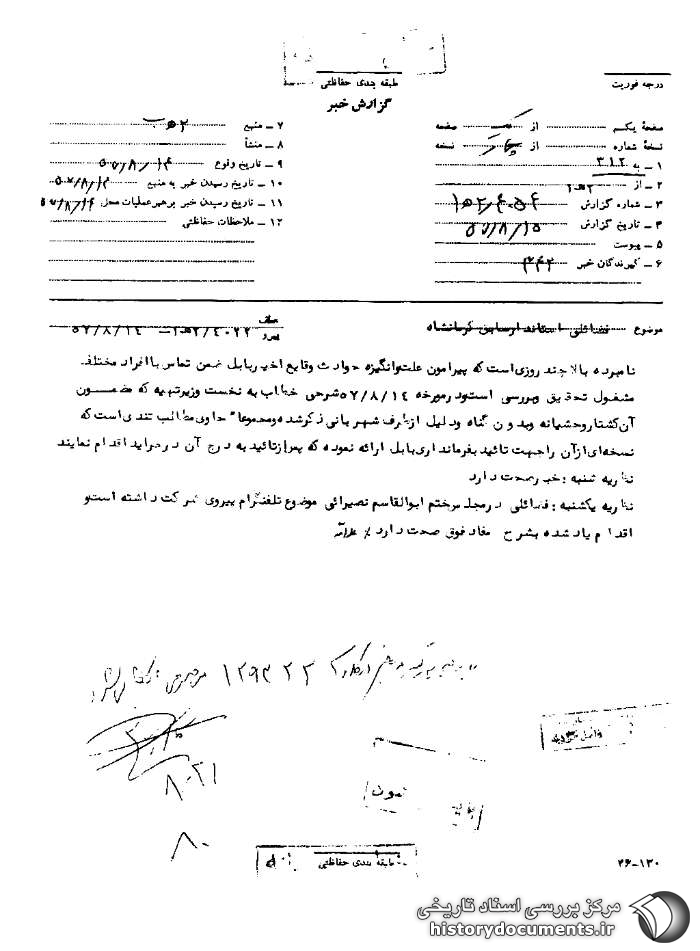 طبقه بندی حفاظتی
گزارش خبر
درجه فوریت
صفحهٔ یکم از یک صفحه
نسخهٔ شماره از نسخه
۱ ـ به ۳۱۲
۲ ـ از ۲ﻫ۱
۳ ـ شماره گزارش
۴ ـ تاریخ گزارش ۵۷/۸/۱۵
۵ ـ پیوست
۶ ـ گیرندگان خبر
۷ ـ منبع
۸ ـ منشأ
۹ ـ تاریخ وقوع ۵۷/۸/۱۴
۱۰ ـ تاریخ رسیدن خبر به منبع ۵۷/۸/۱۴
۱۱ ـ تاریخ رسیدن خبر برهبر عملیات محل ۵۷/۸/۱۴
۱۲ ـ ملاحظات حفاظتی
موضوع فضائلی استاندار سابق کرمانشاه
نامبرده بالا چند روزی است که پیرامون علت وانگیزه حوادث وقایع اخیر بابل ضمن تماس با افراد مختلف
مشغول تحقیق وبررسی است ودر مورخه ۵۷/۸/۱۴ شرحی خطاب به نخست وزیر تهیه که مضمون
آن کشتار وحشیانه وبدون گناه ودلیل از طرف شهربانی ذکر شده ومجموعا" حاوی مطالب تندی است که
نسخه ای از آن را جهت تائید بفرمانداری بابل ارائه نموده که پس از تائید به درج آن در جراید اقدام نمایند
نظریه شنبه : خبر صحت دارد
نظریه یکشنبه : فضائلی در مجلس ختم ابوالقاسم نصیرائی موضوع تلفنگرام پیروی شرکت داشته است و
اقدام یاد شده بشرح مفاد فوق صحت دارد
۸-۲۱
۸-
طبقه بندی حفاظتی
۲۶-۱۳۰
مرکز بررسی اسناد تاریخی
historydocuments.ir